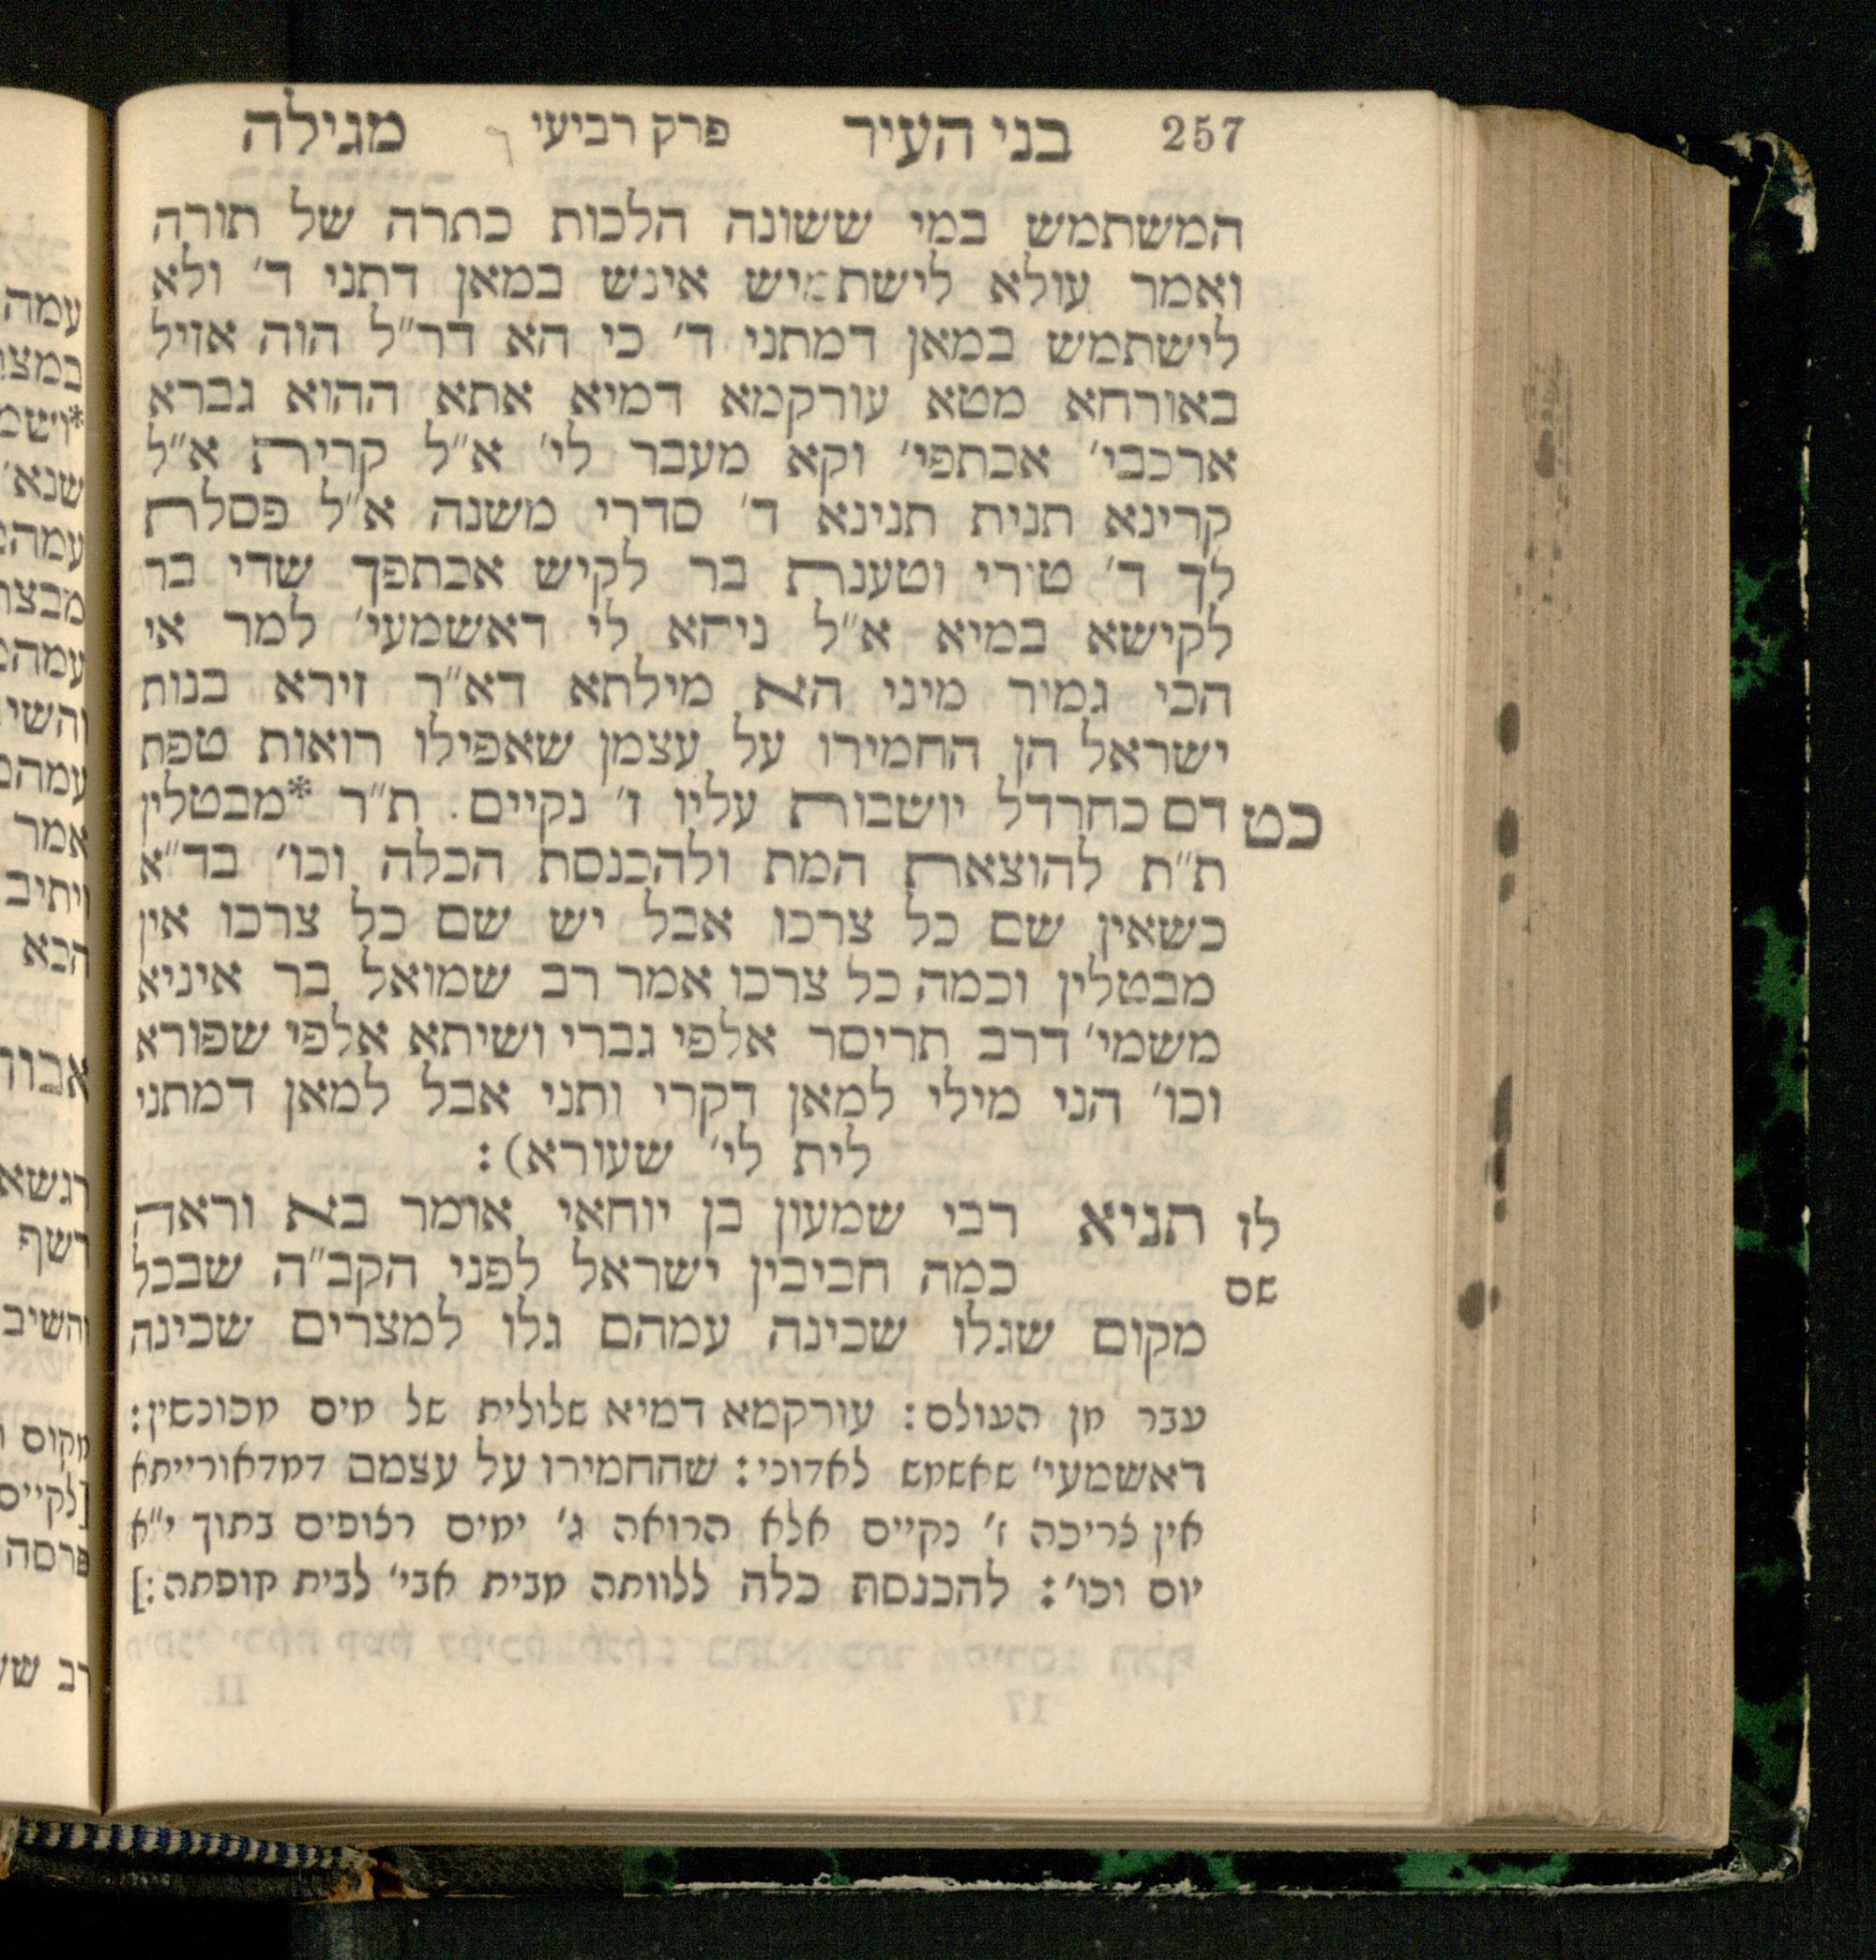 257 בני העיר פרק רביעי מגילה
המשתמש במי ששונה הלכות כתרה של תורה
ואמר עולא לישתמיש אינש במאן דתני ד׳ ולא
לישתמש במאן דמתני ד׳ כי הא דר״ל הוה אזיל
באורחא מטא עורקמא דמיא אתא ההוא גברא
ארכבי׳ אכתפי׳ וקא מעבר לי׳ א״ל קרית א״ל
קרינא תנית תנינא ד׳ סדרי משנה א״ל פסלת
לך ד׳ טורי וטענת בר לקיש אכתפך שדי בר
לקישא במיא א״ל ניחא לי דאשמעי׳ למר אי
הכי גמור מיני הא מילתא דא״ר זירא בנות
ישראל הן החמירו על עצמן שאפילו רואות טפת
כט דם כחרדל יושבות עליו ז׳ נקיים. ת״ר *מבטלין
ת״ת להוצאת המת ולהכנסת הכלה וכו׳ בד״א
כשאין שם כל צרכו אבל יש שם כל צרכו אין
מבטלין וכמה כל צרכו אמר רב שמואל בר איניא
משמי׳ דרב תריסר אלפי גברי ושיתא אלפי שפורא
וכו׳ הני מילי למאן דקרי ותני אבל למאן דמתני
לית לי׳ שעורא):
לז תניא רבי שמעון בן יוחאי אומר בא וראה
שם כמה חביבין ישראל לפני הקב״ה שבכל
מקום שגלו שכינה עמהם גלו למצרים שכינה
עבר מן העולם: עורקמא דמיא שלולית של מים מכונשין:
דאשמעי׳ שאשמש לאדוני: שהחמירו על עצמם דמדאורייתא
אין צריכה ז׳ נקיים אלא הרואה ג׳ ימים רצופים בתוך י״א
יום וכו׳: להכנסת כלה ללוותה מבית אבי׳ לבית חופתה:]